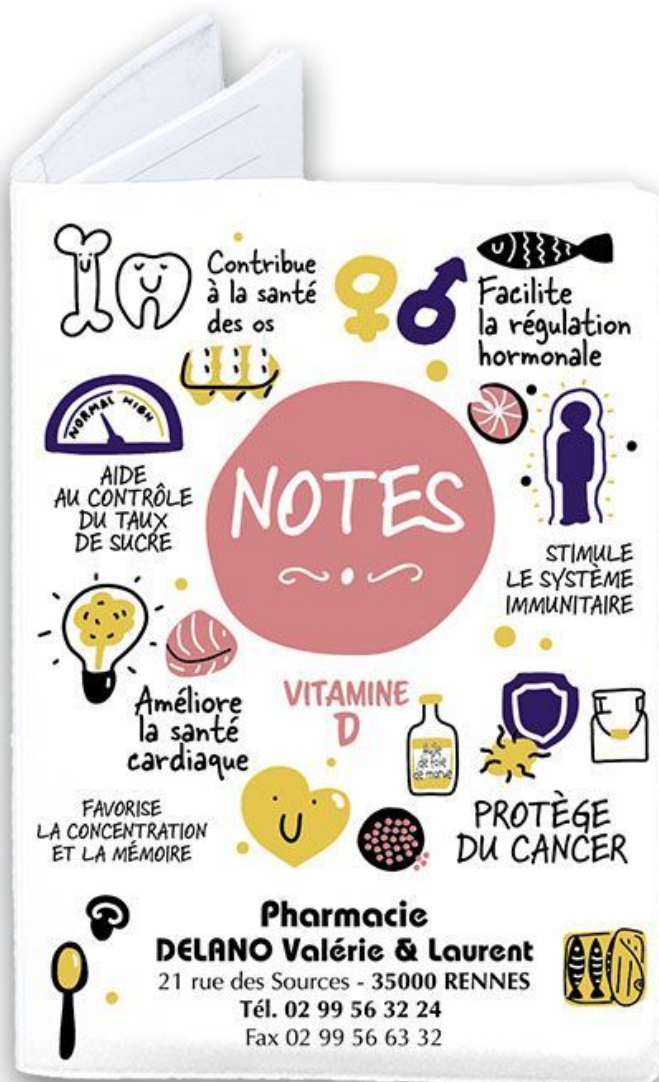 Contribue
à la santé
des os
Facilite
la régulation
hormonale
NORMAL HIGH
AIDE
AU CONTRÔLE
DU TAUX
DE SUCRE
NOTES
STIMULE
LE SYSTÈME
IMMUNITAIRE
Améliore
la santé
cardiaque
VITAMINE
D
Huile
de foie
de morue
FAVORISE
LA CONCENTRATION
ET LA MÉMOIRE
PROTÈGE
DU CANCER
Pharmacie
DELANO Valérie & Laurent
21 rue des Sources - 35000 RENNES
Tél. 02 99 56 32 24
Fax 02 99 56 63 32